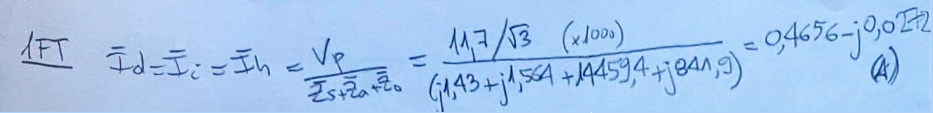 1FT Īd=Īi=Īh = Vp / (Z̄s+Z̄a+Z̄o) = 11,7/√3 (x1000) / (j1,43+j1,564+14459,4+j841,9) = 0,4656-j0,0272 (A)